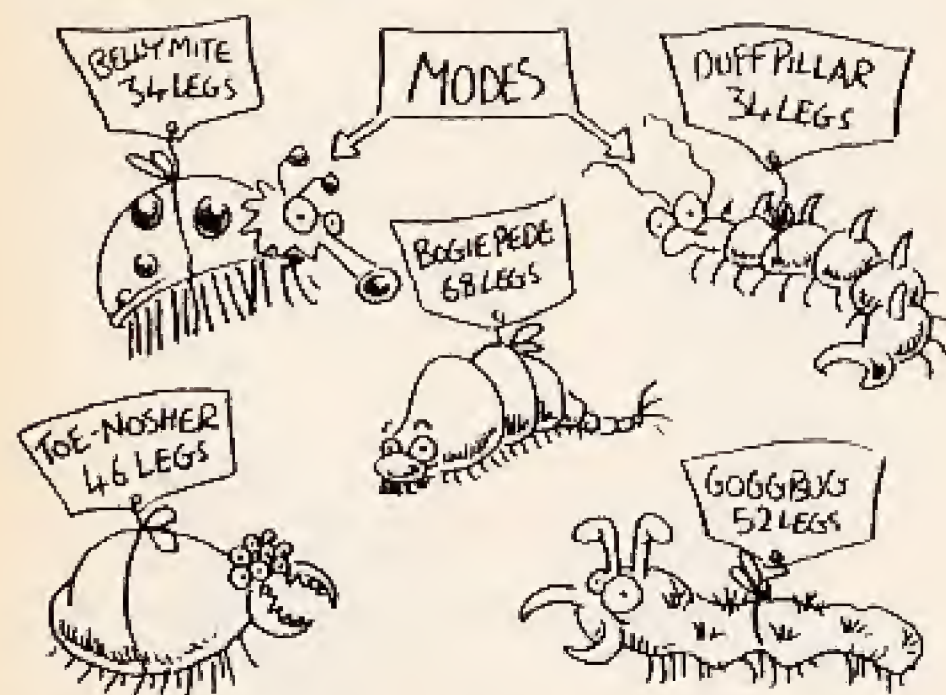 BELLYMITE
34 LEGS
MODES
DUFFPILLAR
34 LEGS
BOGIEPEDE
68 LEGS
TOE-NOSHER
46 LEGS
GOGGBUG
52 LEGS